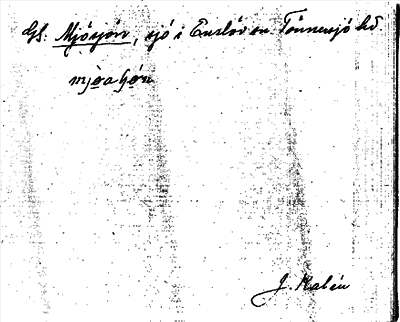 Gl. Mjösjön, sjö i Enslöv sn Tönnersjö hd.
mjòa ʃǿn
J. Kalén